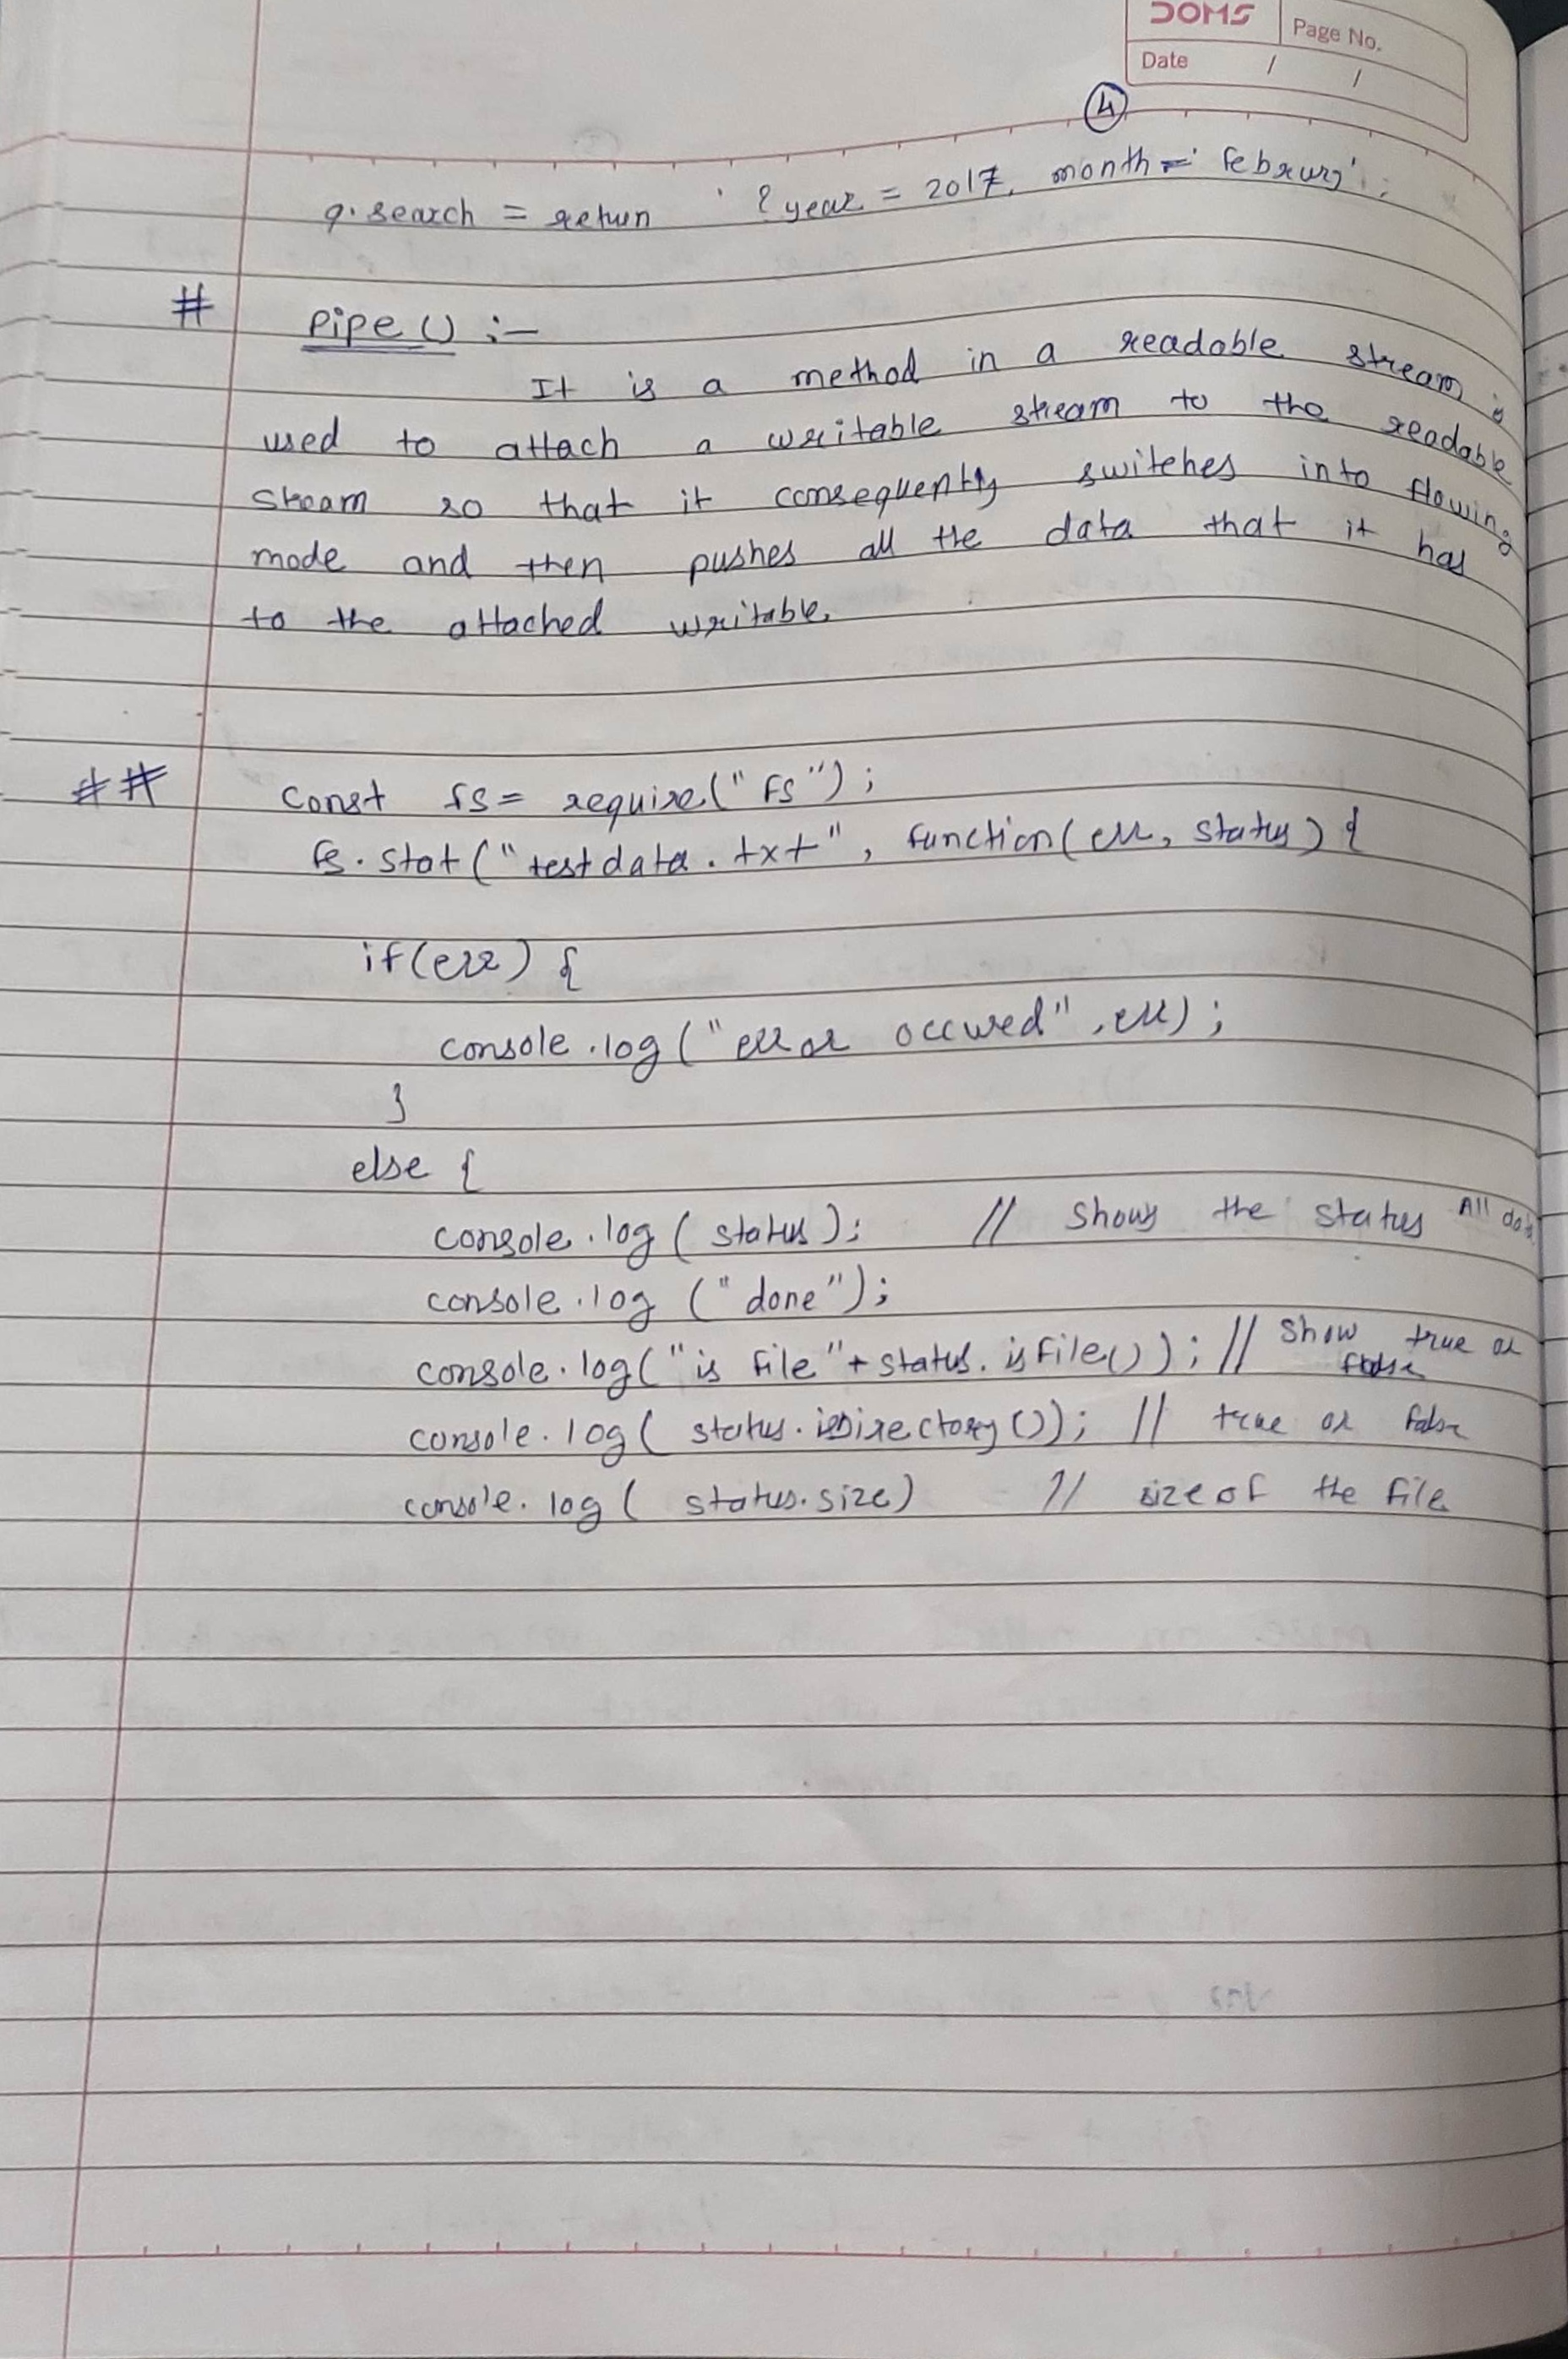 DOMS
Page No.
Date / /
4
q.search = return '?year = 2017, month = 'februry';
# Pipe() :-
It is a method in a readable stream is
used to attach a writable stream to the readable
stream so that it consequently switches into flowing
mode and then pushes all the data that it has
to the attached writable.
## const fs = require("fs");
fs.stat("testdata.txt", function(err, status) {
if(err) {
console.log("error occured", err);
}
else {
console.log(status); // shows the status All data
console.log("done");
console.log("is file"+status.isfile()); // show true or
false
console.log(status.isDirectory()); // true or false
console.log(status.size) // size of the file